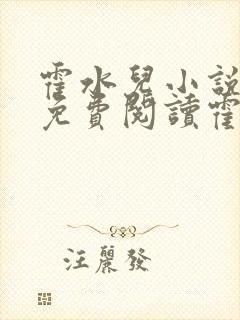 霍水兒小說
免費閱讀霍
汪麗發